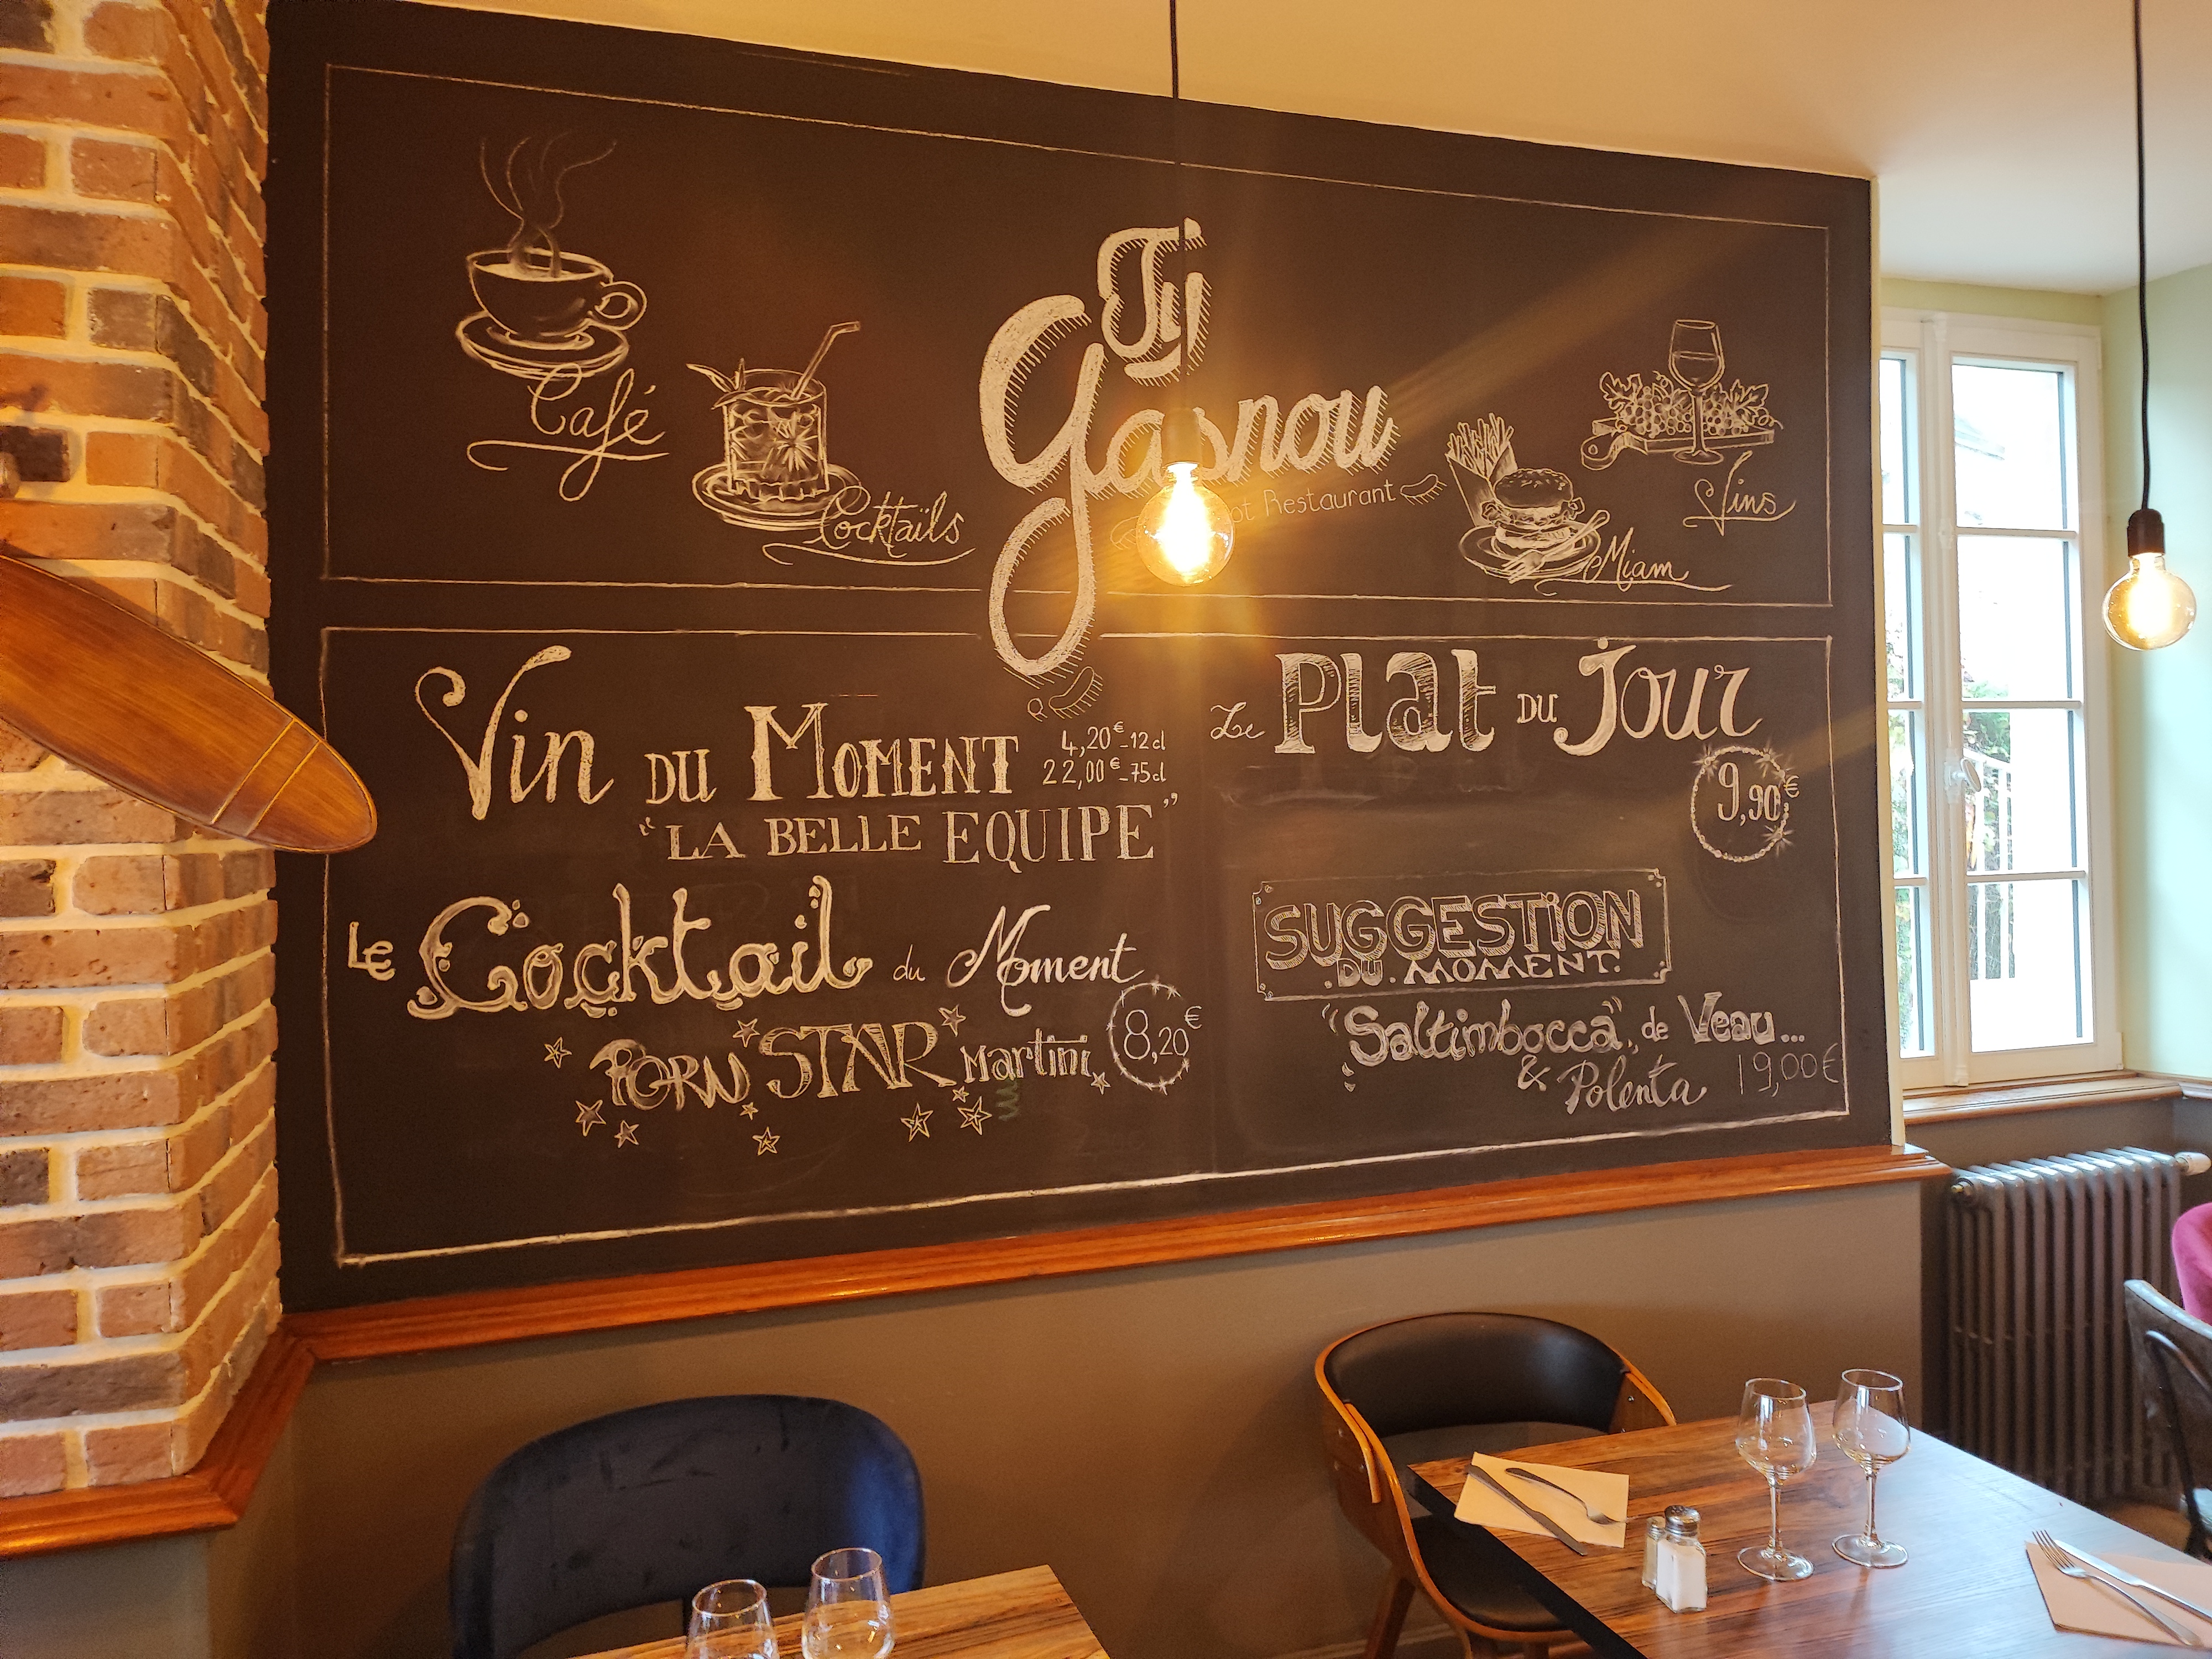 Café
Cocktaïls
Ty
Gasnou
Restaurant
Miam
Vins
Vin DU MOMENT
4,20€-12cl
22,00€-75cl
"LA BELLE EQUIPE"
LE Cocktail du Moment
PORN STAR Martini
8,20€
Le Plat DU Jour
9,90€
SUGGESTION
.DU.MOMENT.
"Saltimbocca" de Veau...
& Polenta 19,00€